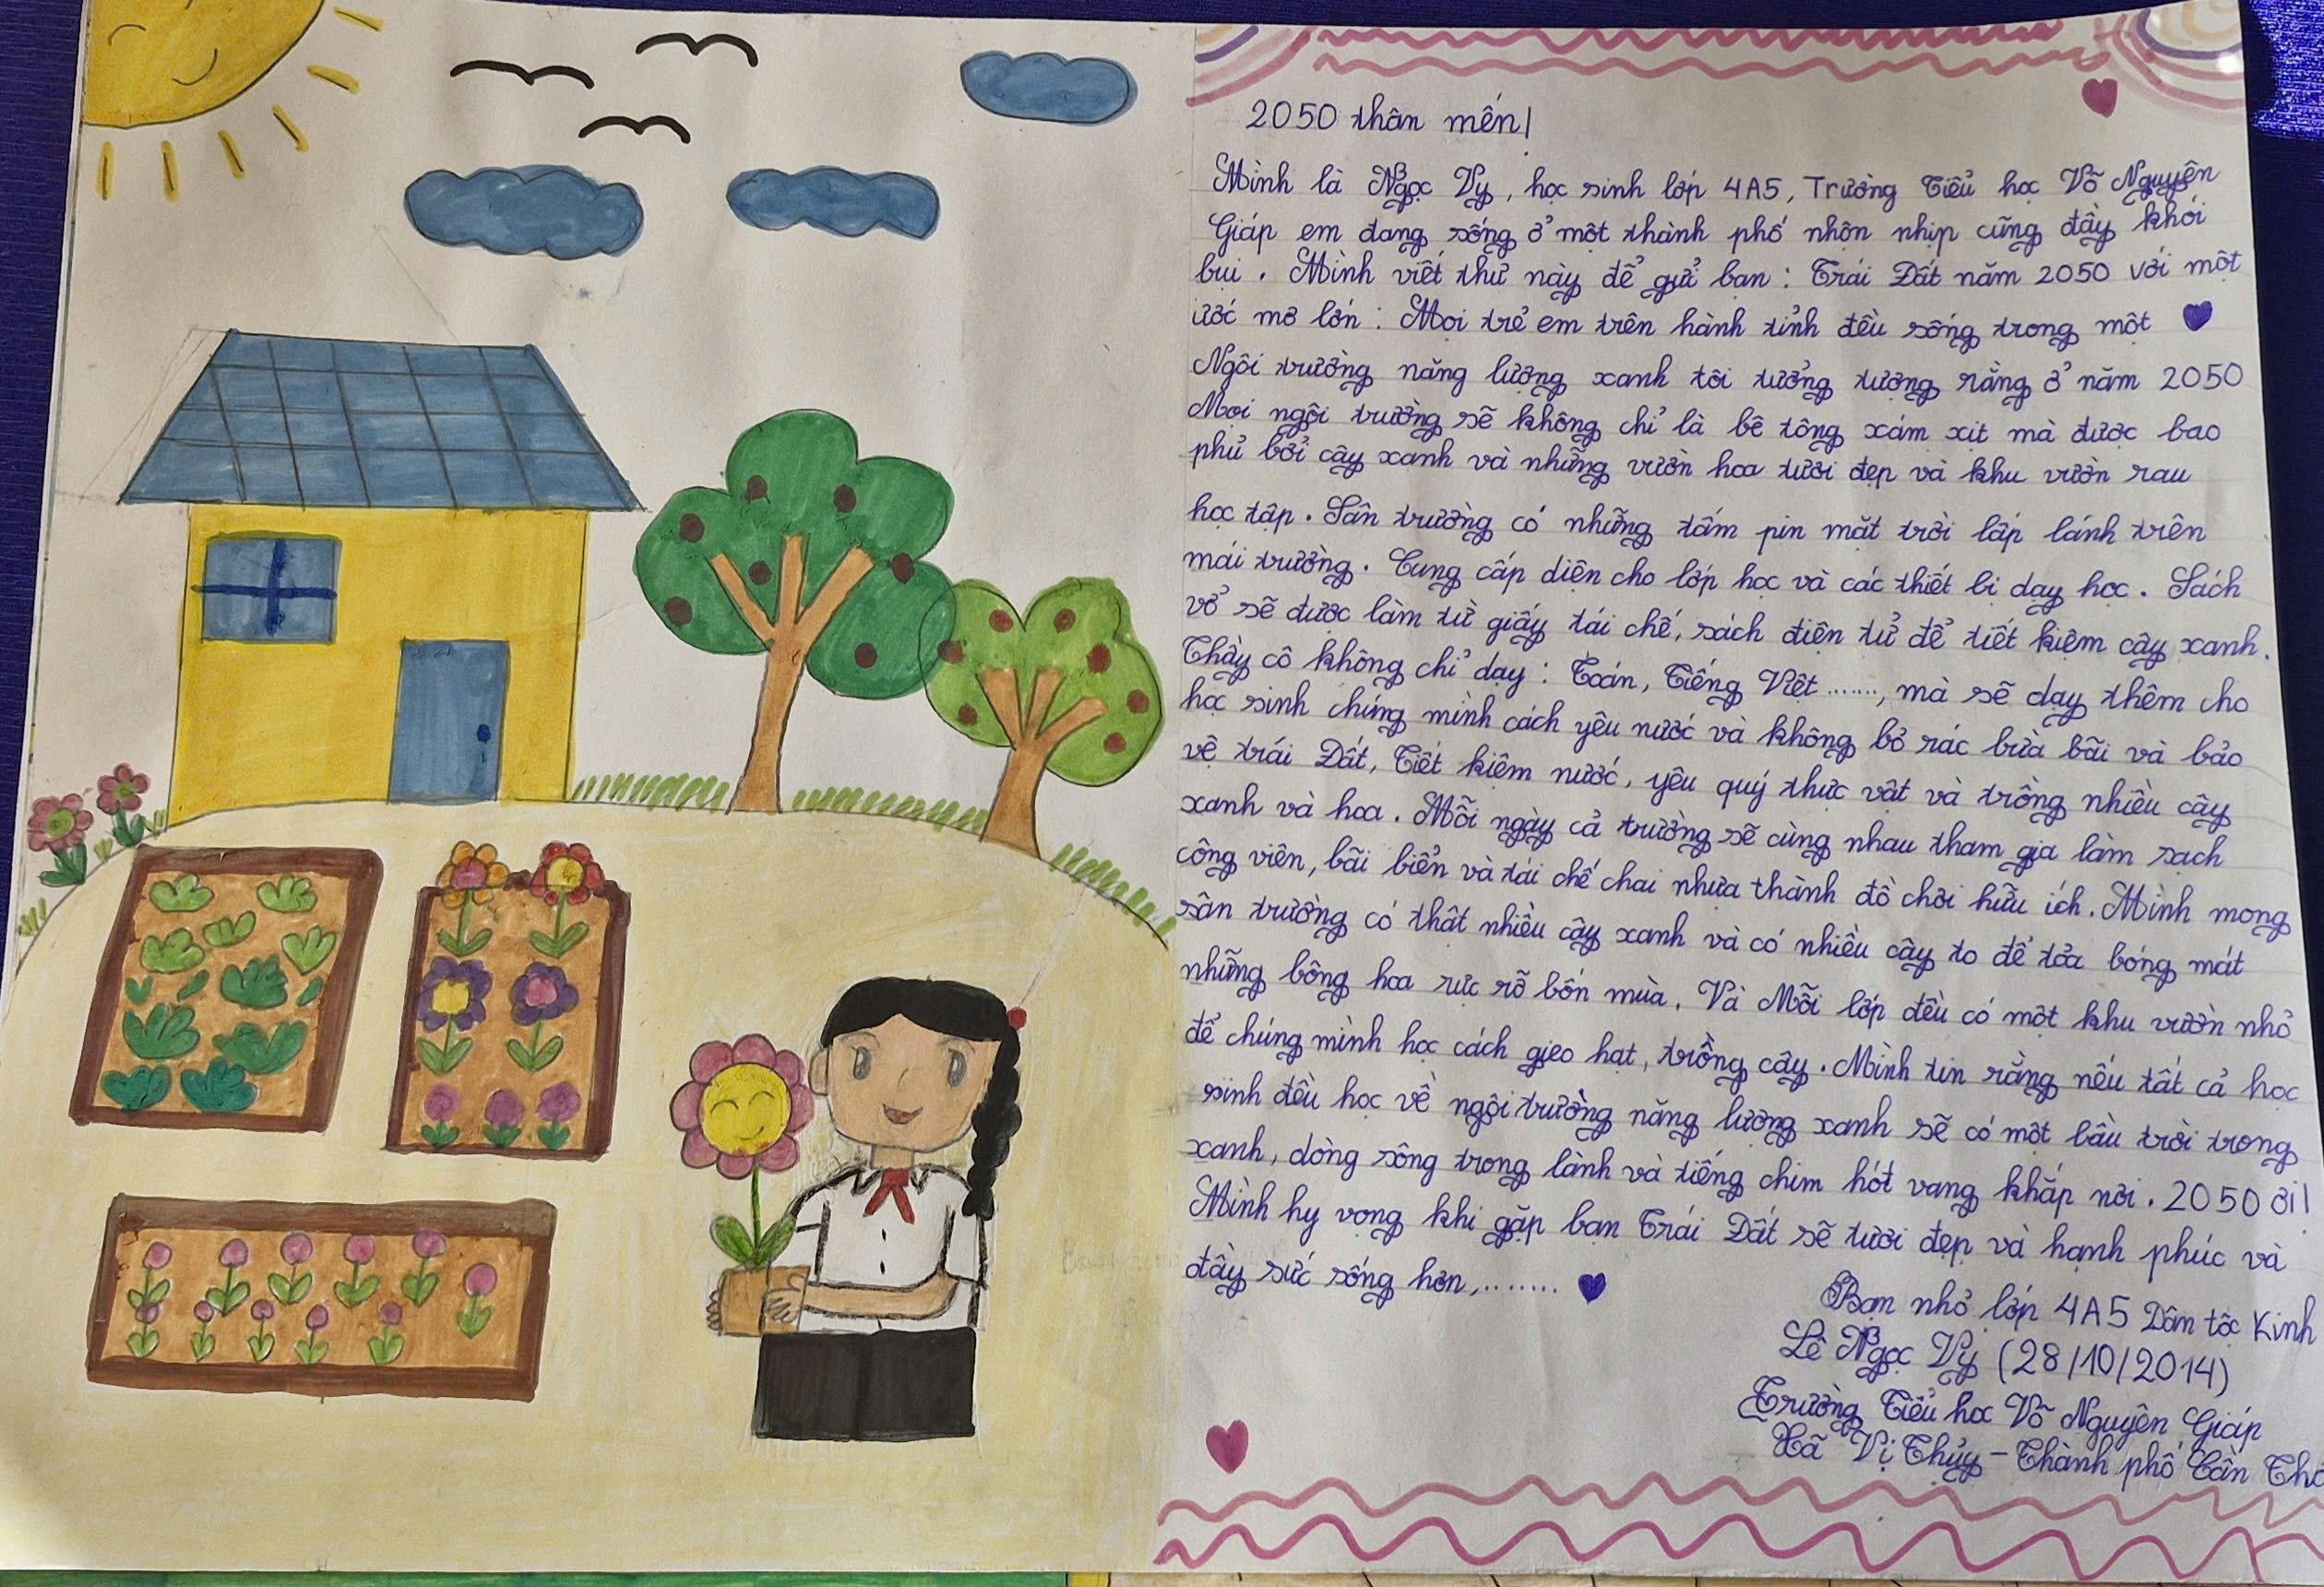 2050 thân mến!
Mình là Ngọc Vy, học sinh lớp 4A5, Trường Tiểu học Võ Nguyên
Giáp em đang sống ở một thành phố nhộn nhịp cũng đầy khói
bụi. Mình viết thư này để gửi bạn: Trái Đất năm 2050 với một
ước mơ lớn: Mọi trẻ em trên hành tinh đều sống trong một
Ngôi trường năng lượng xanh tôi tưởng tượng rằng ở năm 2050
Mọi ngôi trường sẽ không chỉ là bê tông xám xịt mà được bao
phủ bởi cây xanh và những vườn hoa tươi đẹp và khu vườn rau
học tập. Sân trường có những tấm pin mặt trời lấp lánh trên
mái trường. Cung cấp điện cho lớp học và các thiết bị dạy học. Sách
vở sẽ được làm từ giấy tái chế, sách điện tử để tiết kiệm cây xanh.
Thầy cô không chỉ dạy: Toán, Tiếng Việt ......., mà sẽ dạy thêm cho
học sinh chúng mình cách yêu nước và không bỏ rác bừa bãi và bảo
vệ trái Đất, Tiết kiệm nước, yêu quý thực vật và trồng nhiều cây
xanh và hoa. Mỗi ngày cả trường sẽ cùng nhau tham gia làm sạch
công viên, bãi biển và tái chế chai nhựa thành đồ chơi hữu ích. Mình mong
sân trường có thật nhiều cây xanh và có nhiều cây to để tỏa bóng mát
những bông hoa rực rỡ bốn mùa. Và Mỗi lớp đều có một khu vườn nhỏ
để chúng mình học cách gieo hạt, trồng cây. Mình tin rằng nếu tất cả học
sinh đều học về ngôi trường năng lượng xanh sẽ có một bầu trời trong
xanh, dòng sông trong lành và tiếng chim hót vang khắp nơi. 2050 ơi!
Mình hy vọng khi gặp bạn Trái Đất sẽ tươi đẹp và hạnh phúc và
đầy sức sống hơn,........
Bạn nhỏ lớp 4A5 Dân tộc Kinh
Lê Ngọc Vy (28/10/2014)
Trường Tiểu học Võ Nguyên Giáp
Xã Vị Thủy - Thành phố Cần Thơ